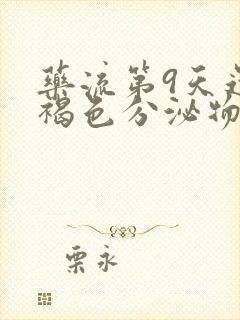 药流第9天还
褐色分泌物
栗永